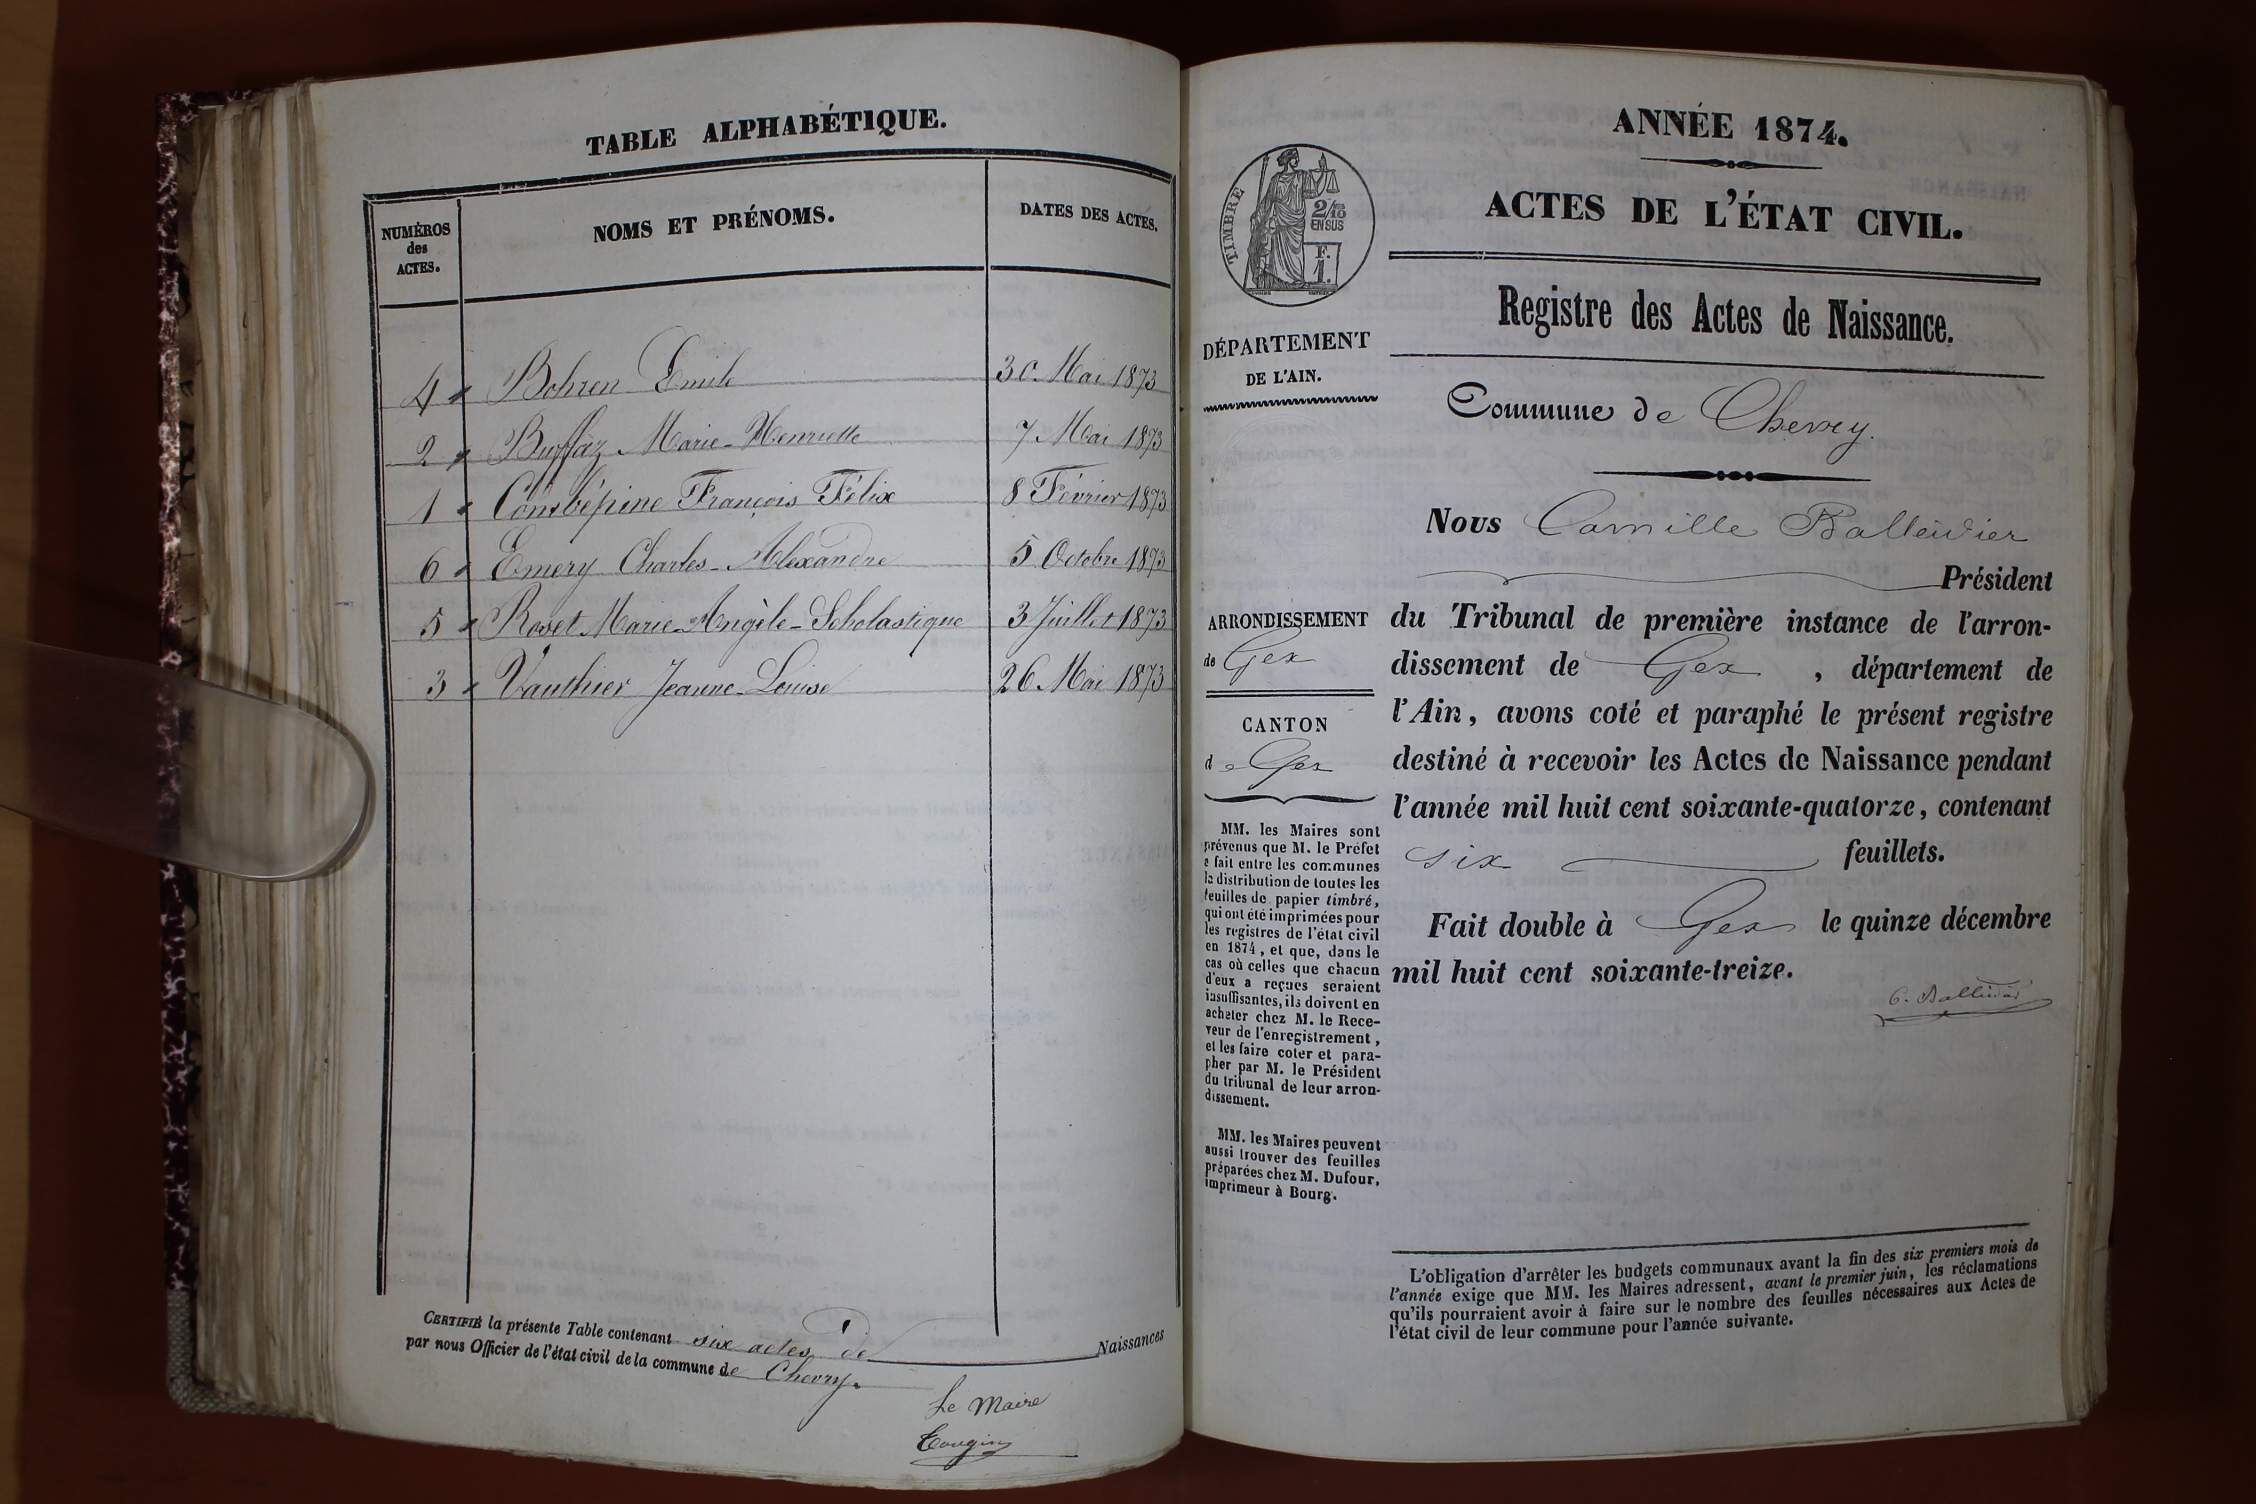 TABLE ALPHABÉTIQUE.
NUMÉROS
des
ACTES.
NOMS ET PRÉNOMS.
DATES DES ACTES.
4 Bohren Emile 30 Mai 1873
2 Buffaz Marie-Henriette 7 Mai 1873
1 François Félix 8 Février 1873
6 Emery Charles-Alexandre 5 Octobre 1873
5 Rosset Marie-Angèle-Scholastique 3 Juillet 1873
3 Vauthier Jeanne-Louise 26 Mai 1873
CERTIFIÉ la présente Table contenant six actes de Naissances
par nous Officier de l'état civil de la commune de Chevry.
Le Maire
ANNÉE 1874.
ACTES DE L'ÉTAT CIVIL.
TIMBRE
2/10
EN SUS
F.
1.
Registre des Actes de Naissance.
DÉPARTEMENT
DE L'AIN.
Commune de Chevry.
Nous Camille Balleidier
Président
ARRONDISSEMENT
de Gex
CANTON
de Gex
du Tribunal de première instance de l'arron-
dissement de Gex, département de
l'Ain, avons coté et paraphé le présent registre
destiné à recevoir les Actes de Naissance pendant
l'année mil huit cent soixante-quatorze, contenant
six feuillets.
Fait double à Gex le quinze décembre
mil huit cent soixante-treize.
C. Balleidier
MM. les Maires sont
prévenus que M. le Préfet
a fait entre les communes
la distribution de toutes les
feuilles de papier timbré,
qui ont été imprimées pour
les registres de l'état civil
en 1874, et que, dans le
cas où celles que chacun
d'eux a reçues seraient
insuffisantes, ils doivent en
acheter chez M. le Rece-
veur de l'enregistrement,
et les faire coter et para-
pher par M. le Président
du tribunal de leur arron-
dissement.
MM. les Maires peuvent
aussi trouver des feuilles
préparées chez M. Dufour,
imprimeur à Bourg.
L'obligation d'arrêter les budgets communaux avant la fin des six premiers mois de
l'année exige que MM. les Maires adressent, avant le premier juin, les réclamations
qu'ils pourraient avoir à faire sur le nombre des feuilles nécessaires aux Actes de
l'état civil de leur commune pour l'année suivante.